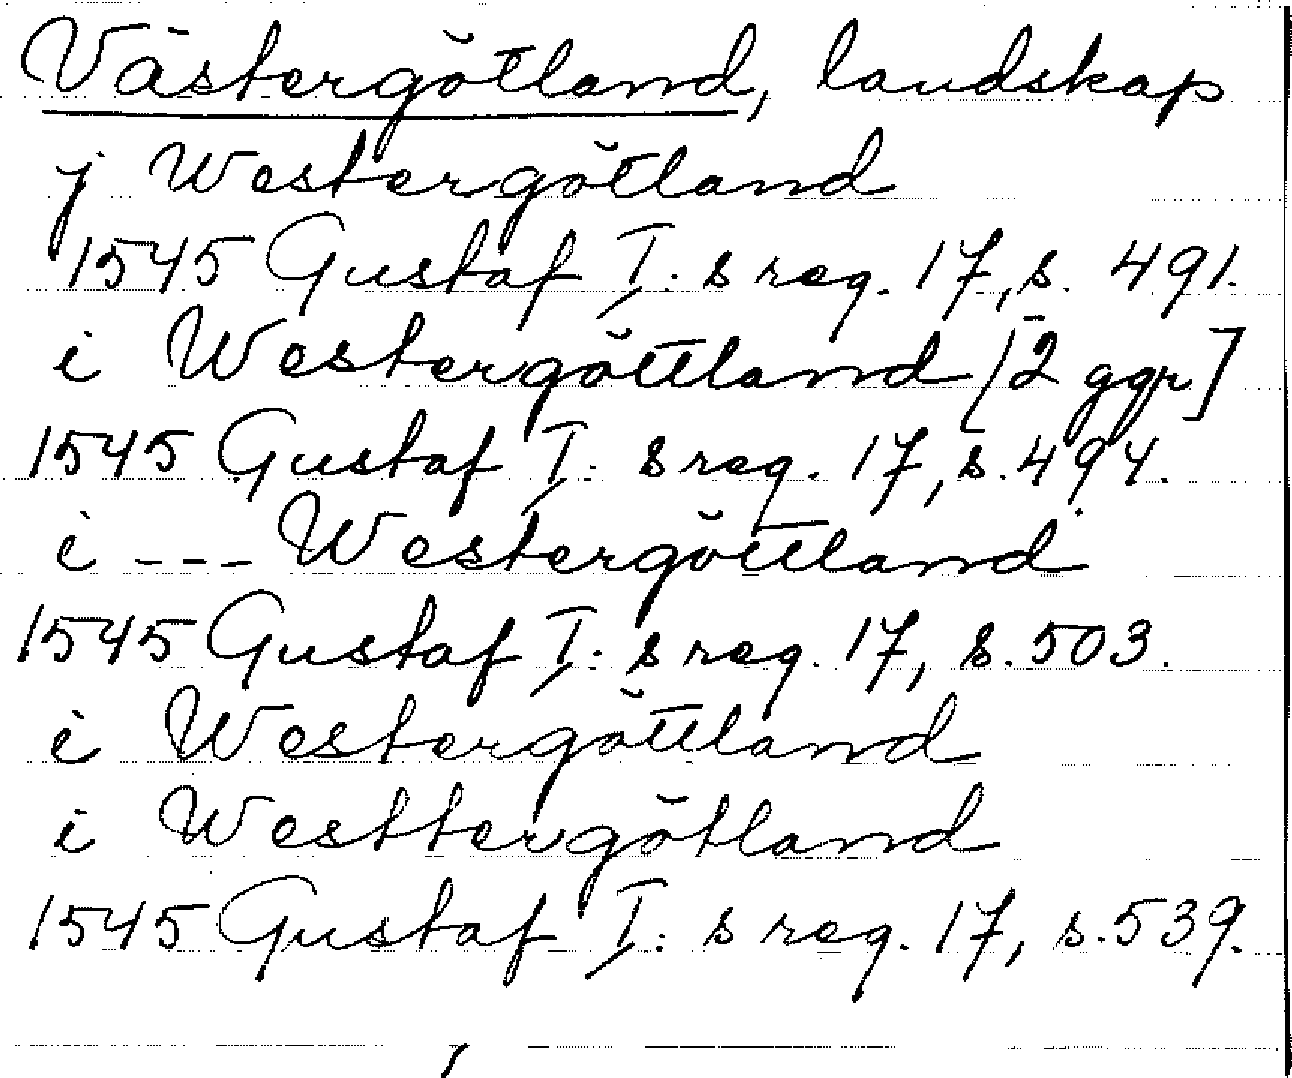 Västergötland, landskap
j Westergötland
1545 Gustaf I:s reg. 17, s. 491.
i Westergöttland [2 ggr]
1545 Gustaf I:s reg. 17, s. 494.
i --- Westergöttland
1545 Gustaf I:s reg. 17, s. 503.
i Westergöttland
i Westtergötland
1545 Gustaf I:s reg. 17, s. 539.